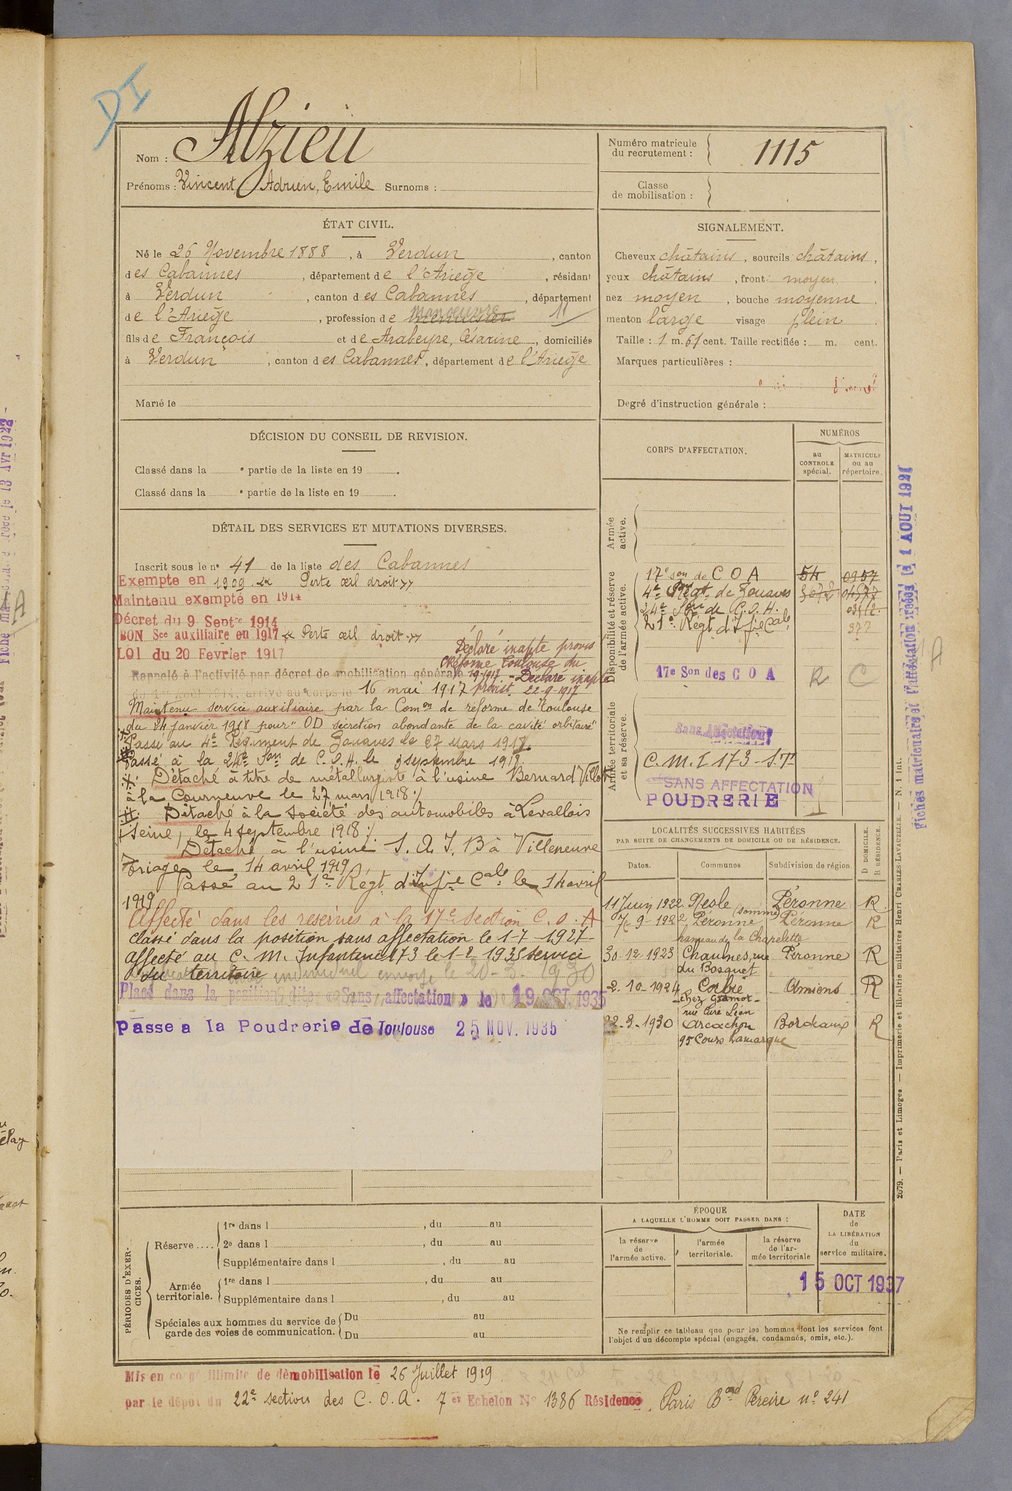 DI
Nom : Alzieu
Prénoms : Vincent, Adrien, Emile Surnoms :
Numéro matricule du recrutement : 1115
Classe de mobilisation :
ÉTAT CIVIL.
Né le 26 Novembre 1888, à Verdun, canton
des Cabannes, département de l'Ariège, résidant
à Verdun, canton des Cabannes, département
de l'Ariège, profession de Manoeuvre
fils de François et de Arabeyre, Césarine, domiciliés
à Verdun, canton des Cabannes, département de l'Ariège
Marié le
SIGNALEMENT.
Cheveux châtains, sourcils châtains,
yeux châtains, front moyen
nez moyen, bouche moyenne
menton large visage plein
Taille : 1 m. 61 cent. Taille rectifiée : m. cent.
Marques particulières :
Degré d'instruction générale :
DÉCISION DU CONSEIL DE REVISION.
Classé dans la e partie de la liste en 19 .
Classé dans la e partie de la liste en 19 .
DÉTAIL DES SERVICES ET MUTATIONS DIVERSES.
Inscrit sous le no 41 de la liste des Cabannes
Exempté en 1909. Perte œil droit
Maintenu exempté en 1914
Décret du 9 Septre 1914
BON Sce auxiliaire en 1917 Perte œil droit
LOI du 20 Fevrier 1917
Déclaré inapte provis
Réforme Toulouse du
Déclaré inapte
provis. 22-9-1917
Rappelé à l'activité par décret de mobilisation générale
arrivé au corps le 16 mai 1917
Maintenu service auxiliaire par la Comon de réforme de Toulouse
du 24 janvier 1918 pour "OD sécrétion abondante de la cavité orbitaire"
Passé au 4e Régiment de Zouaves le 27 mars 1918
Passé à la 24e Son de C.O.A. le 3 septembre 1918
Détaché à titre de métallurgiste à l'usine Bernard
à la Courneuve le 27 mars 1918
Détaché à la Société des automobiles à Levallois
(Seine) le 4 septembre 1918
Détaché à l'usine S.A.I.B à Villeneuve
Triage le 14 avril 1919
Passé au 21e Régt d'Infie Cale le 14 avril
1919
Affecté dans les réserves à la 17e Section C.O.A
classé dans la position sans affectation le 1-7-1927
Affecté au C.M. Infanterie 173 le 1-2-1935 service
du territoire
Placé dans la position dite « Sans affectation » le 19 OCT. 1935
Passé à la Poudrerie de Toulouse 25 NOV. 1935
CORPS D'AFFECTATION.
NUMÉROS
au CONTROLE spécial.
MATRICULE ou au répertoire.
Armée active.
Disponibilité et réserve de l'armée active.
17e son de C O A 54 0957
4e Régt de Zouaves
24e Son de C.O.A.
21e Régt d'Infie Cale 377
17e Son des C O A R C
Armée territoriale et sa réserve.
Sans Affectation
C.M.I 173 - S.T.
SANS AFFECTATION
POUDRERIE
Fiches matricule et d'affectation créées le 1 AOUT 1921
A
LOCALITÉS SUCCESSIVES HABITÉES
PAR SUITE DE CHANGEMENTS DE DOMICILE OU DE RÉSIDENCE.
Dates. Communes Subdivision de région. D DOMICILE. R RÉSIDENCE.
11 Juin 1922 Nesle (Somme) Péronne R
7-9-1922 Péronne Péronne R
hameau de la Chapelette
30-12-1923 Chaulnes, rue Péronne R
du Bosquet
2-10-1924 Corbie Amiens R
chez Gramot
22-3-1930 Arcachon Bordeaux R
95 Cours Lamarque
2679. — Paris et Limoges. — Imprimerie et librairie militaires Henri CHARLES-LAVAUZELLE. — N. 1 int.
PÉRIODES D'EXERCICES.
Réserve .... 1re dans l , du au
2e dans l , du au
Supplémentaire dans l , du au
Armée territoriale. 1re dans l , du au
Supplémentaire dans l , du au
Spéciales aux hommes du service de garde des voies de communication. Du au
Du au
ÉPOQUE
A LAQUELLE L'HOMME DOIT PASSER DANS :
la réserve de l'armée active.
l'armée territoriale.
la réserve de l'armée territoriale
DATE de LA LIBÉRATION du service militaire.
15 OCT 1937
Ne remplir ce tableau que pour les hommes dont les services font
l'objet d'un décompte spécial (engagés, condamnés, omis, etc.).
Mis en congé illimité de démobilisation le 26 Juillet 1919
par le dépôt du 22e section des C.O.A. 7e Echelon No 1386 Résidence, Paris Bard Pereire no 241